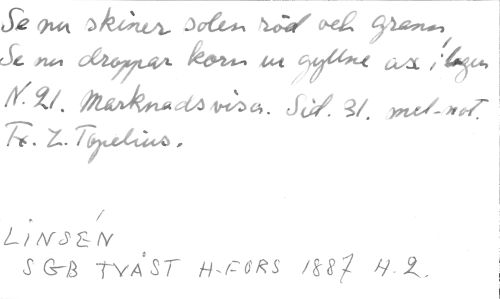 Se nu skiner solen röd och grann,
Se nu droppar korn ur gyllne ax i lagun
N. 21. Marknadsvisa. Sid. 31. mel-not.
Tx. Z. Topelius.
LINSÉN
SGB TVÅST H-FORS 1887 H.2.